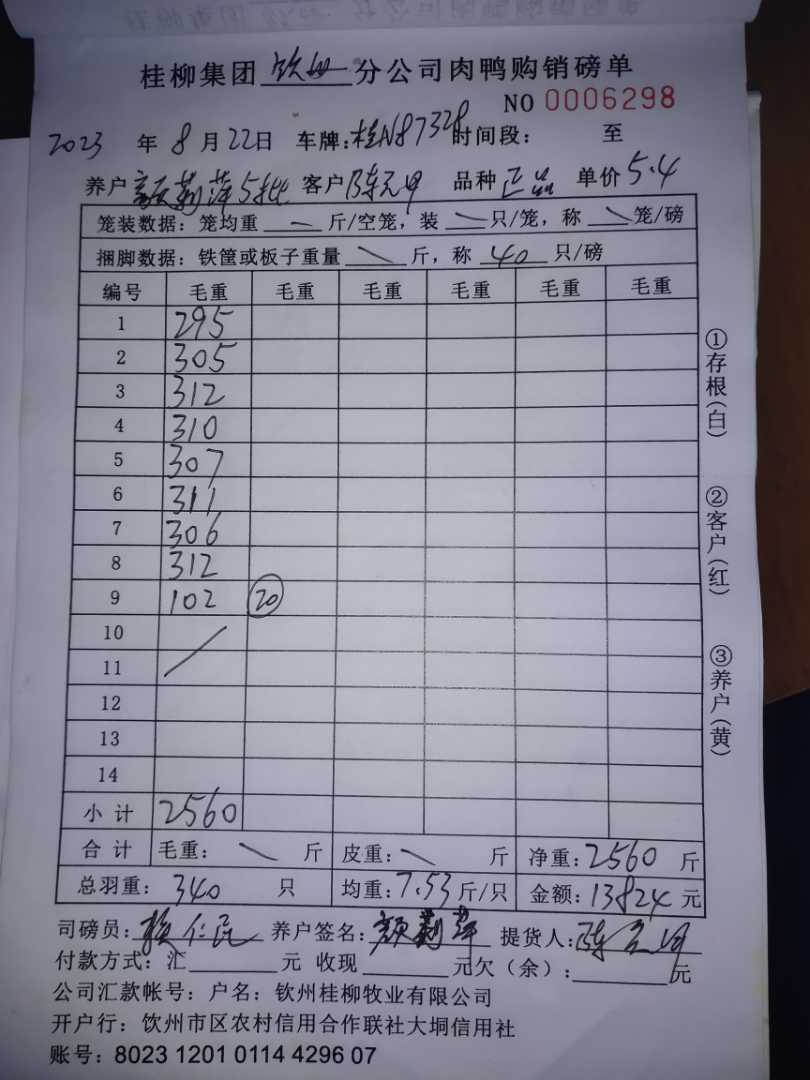 桂柳集团 钦州 分公司肉鸭购销磅单
NO 0006298
2023 年 8 月 22 日 车牌:桂N87328 时间段: 至
养户 颜莉萍5批 客户 陈元 品种 正品 单价 5.4
笼装数据:笼均重 — 斤/空笼,装 \ 只/笼,称 \ 笼/磅
捆脚数据:铁筐或板子重量 \ 斤,称 40 只/磅
编号 毛重 毛重 毛重 毛重 毛重 毛重
1 295
2 305
3 312
4 310
5 307
6 311
7 306
8 312
9 102 20
10
11
12
13
14
小计 2560
合计 毛重: \ 斤 皮重: \ 斤 净重:2560 斤
总羽重: 340 只 均重:7.53 斤/只 金额:13824 元
司磅员: 养户签名:颜莉萍 提货人:陈
付款方式:汇 元 收现 元欠(余): 元
公司汇款帐号:户名:钦州桂柳牧业有限公司
开户行:饮州市区农村信用合作联社大垌信用社
账号:8023 1201 0114 4296 07
①存根(白)
②客户(红)
③养户(黄)